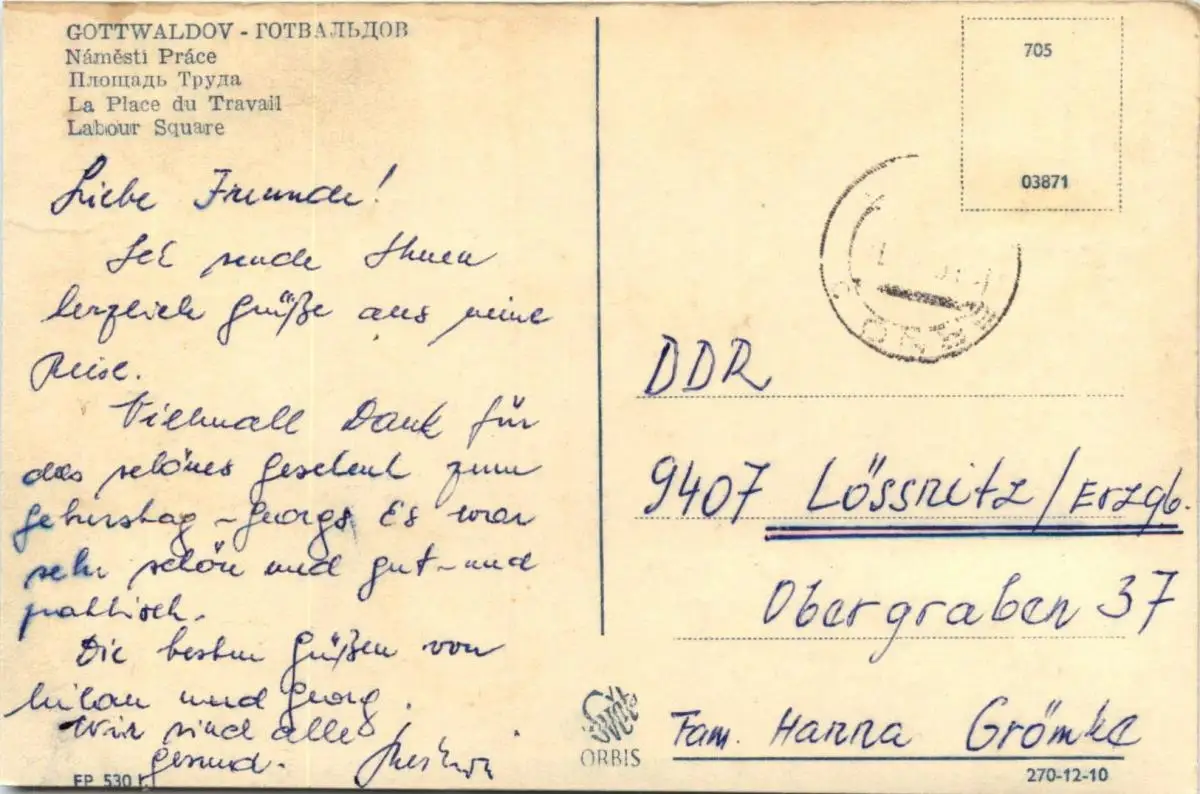 GOTTWALDOV - ГОТВАЛЬДОВ
Náměstí Práce
Площадь Труда
La Place du Travail
Labour Square
Liebe Freunde!
Ich sende Ihnen
herzlich Grüße aus meine
Reise.
Vielmall Dank für
das schönes Geschenk zum
Geburstag - Georgs Es war
sehr schön und gut - und
praktisch.
Die besten Grüßen von
Milan und Georg.
Wir sind alle
gesund.
EP 530
705
03871
DDR
9407 Lössnitz / Erzgb.
Obergraben 37
Fam. Hanna Grömke
ORBIS
270-12-10